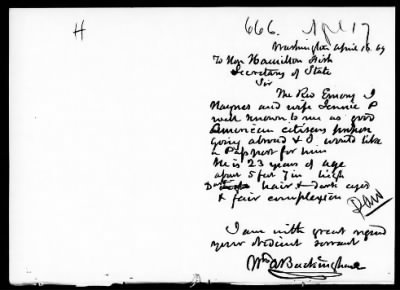 H
666. Apl 17
Washington April 16. 69
To Hon Hamilton Fish
Secretary of State
Sir
The Rev Emory J
Haynes and wife Jennie P
well known to me as good
American citizens propose
going abroad & I would like
a Passport for him
He is 23 years of age
about 5 feet 7 in high
Dark hair & dark eyes
& fair complexion
I am with great regard
your obedient servant
Wm A Buckingham